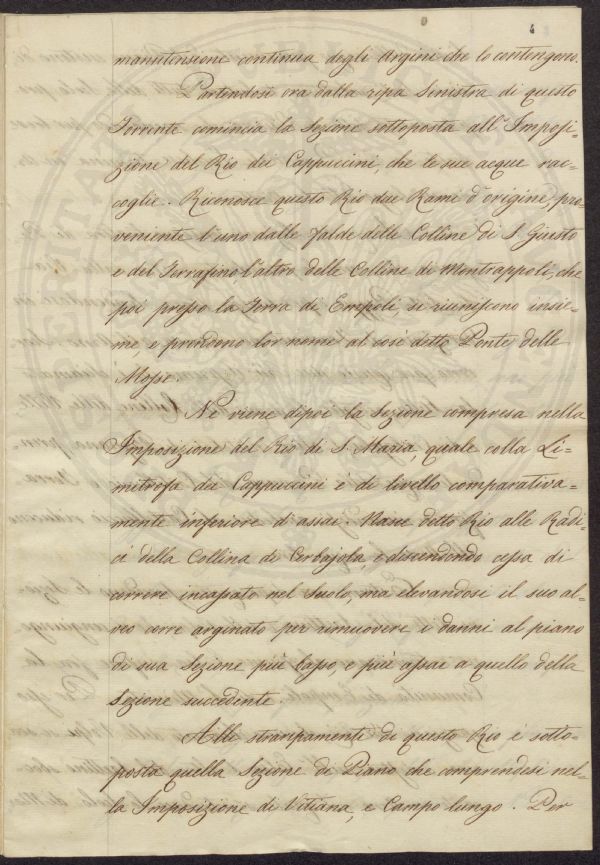 4
manutensione continua degli Argini che lo contengono.
Partendosi ora dalla ripa Sinistra di questo
Torrente comincia la Sezione sottoposta all'Imposi-
zione del Rio dei Cappuccini, che le sue acque rac-
coglie. Riconosce questo Rio due Rami d'origine, pro-
veniente l'uno dalle falde delle Colline di S. Giusto
e del Terrafino, l'altro delle Colline di Montrappoli, che
poi presso la Terra di Empoli, si riuniscono insie-
me, e prendono lor nome al così detto Ponte delle
Mosse.
Ne viene dipoi la Sezione compresa nella
Imposizione del Rio di S. Maria, quale colla Li-
mitrofa dei Cappuccini è di livello comparativa-
mente inferiore d'assai. Nasce detto Rio alle Radi-
ci della Collina di Cerbajola, e discendendo cessa di
correre incassato nel Suolo, ma elevandosi il suo al-
veo corre arginato per rimuovere i danni al piano
di sua Sezione più basso, e più assai a quello della
Sezione succedente.
Alli straripamenti di questo Rio è sotto-
posta quella Sezione di Piano che comprendesi nel-
la Imposizione di Vitiana, e Campo lungo. Per